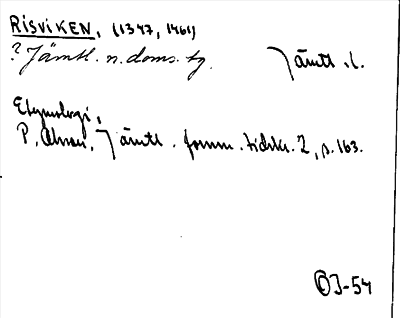 RISVIKEN, (1347, 1461)
? Jämtl. n. doms. tg. Jämtl. l.
Etymologi,
P. Olsson, Jämtl. fornm. tidskr. 2, s. 163.
OJ-54